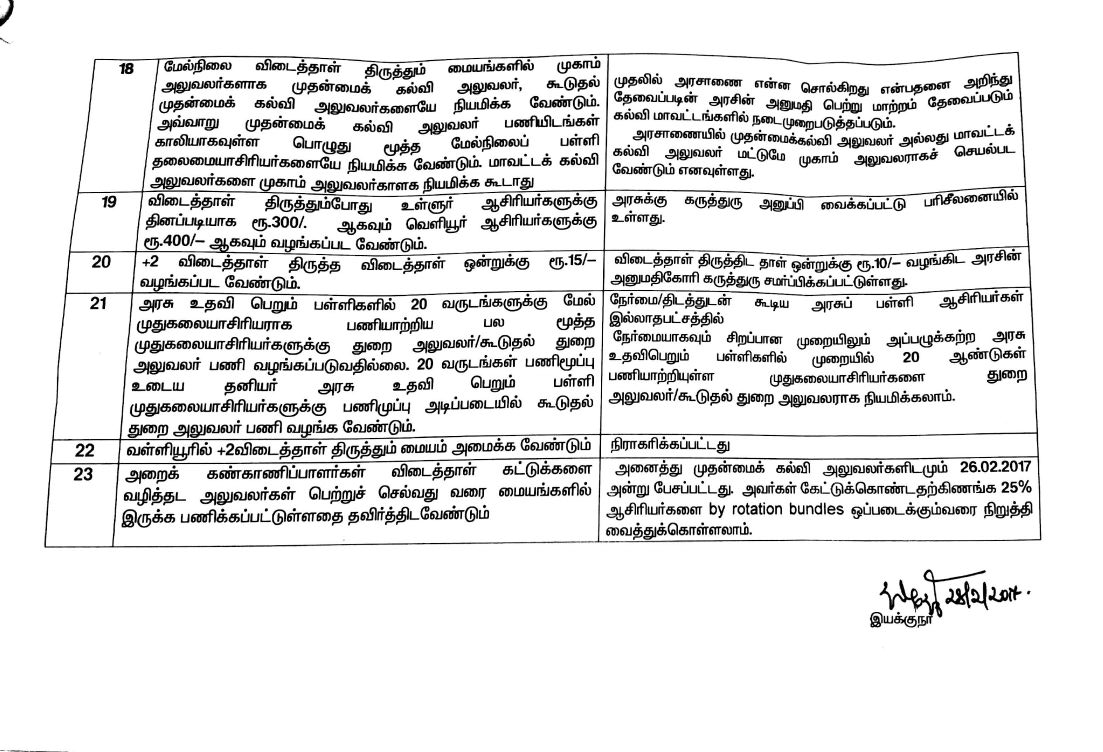 18
மேல்நிலை விடைத்தாள் திருத்தும் மையங்களில் முகாம்
அலுவலர்களாக முதன்மைக் கல்வி அலுவலர், கூடுதல்
முதன்மைக் கல்வி அலுவலர்களையே நியமிக்க வேண்டும்.
அவ்வாறு முதன்மைக் கல்வி அலுவலர் பணியிடங்கள்
காலியாகவுள்ள பொழுது மூத்த மேல்நிலைப் பள்ளி
தலைமையாசிரியர்களையே நியமிக்க வேண்டும். மாவட்டக் கல்வி
அலுவலர்களை முகாம் அலுவலர்காளக நியமிக்க கூடாது
முதலில் அரசாணை என்ன சொல்கிறது என்பதனை அறிந்து
தேவைப்படின் அரசின் அனுமதி பெற்று மாற்றம் தேவைப்படும்
கல்வி மாவட்டங்களில் நடைமுறைபடுத்தப்படும்.
அரசாணையில் முதன்மைக்கல்வி அலுவலர் அல்லது மாவட்டக்
கல்வி அலுவலர் மட்டுமே முகாம் அலுவலராகச் செயல்பட
வேண்டும் எனவுள்ளது.
19
விடைத்தாள் திருத்தும்போது உள்ளுர் ஆசிரியர்களுக்கு
தினப்படியாக ரூ.300/. ஆகவும் வெளியூர் ஆசிரியர்களுக்கு
ரூ.400/– ஆகவும் வழங்கப்பட வேண்டும்.
அரசுக்கு கருத்துரு அனுப்பி வைக்கப்பட்டு பரிசீலனையில்
உள்ளது.
20
+2 விடைத்தாள் திருத்த விடைத்தாள் ஒன்றுக்கு ரூ.15/–
வழங்கப்பட வேண்டும்.
விடைத்தாள் திருத்திட தாள் ஒன்றுக்கு ரூ.10/– வழங்கிட அரசின்
அனுமதிகோரி கருத்துரு சமர்ப்பிக்கப்பட்டுள்ளது.
21
அரசு உதவி பெறும் பள்ளிகளில் 20 வருடங்களுக்கு மேல்
முதுகலையாசிரியராக பணியாற்றிய பல மூத்த
முதுகலையாசிரியர்களுக்கு துறை அலுவலர்/கூடுதல் துறை
அலுவலர் பணி வழங்கப்படுவதில்லை. 20 வருடங்கள் பணிமூப்பு
உடைய தனியர் அரசு உதவி பெறும் பள்ளி
முதுகலையாசிரியர்களுக்கு பணிமுப்பு அடிப்படையில் கூடுதல்
துறை அலுவலர் பணி வழங்க வேண்டும்.
நேர்மை/திடத்துடன் கூடிய அரசுப் பள்ளி ஆசிரியர்கள்
இல்லாதபட்சத்தில்
நேர்மையாகவும் சிறப்பான முறையிலும் அப்பழுக்கற்ற அரசு
உதவிபெறும் பள்ளிகளில் முறையில் 20 ஆண்டுகள்
பணியாற்றியுள்ள முதுகலையாசிரியர்களை துறை
அலுவலர்/கூடுதல் துறை அலுவலராக நியமிக்கலாம்.
22
வள்ளியூரில் +2விடைத்தாள் திருத்தும் மையம் அமைக்க வேண்டும்
நிராகரிக்கப்பட்டது
23
அறைக் கண்காணிப்பாளர்கள் விடைத்தாள் கட்டுக்களை
வழித்தட அலுவலர்கள் பெற்றுச் செல்வது வரை மையங்களில்
இருக்க பணிக்கப்பட்டுள்ளதை தவிர்த்திடவேண்டும்
அனைத்து முதன்மைக் கல்வி அலுவலர்களிடமும் 26.02.2017
அன்று பேசப்பட்டது. அவர்கள் கேட்டுக்கொண்டதற்கிணங்க 25%
ஆசிரியர்களை by rotation bundles ஒப்படைக்கும்வரை நிறுத்தி
வைத்துக்கொள்ளலாம்.
28/2/2017.
இயக்குநர்